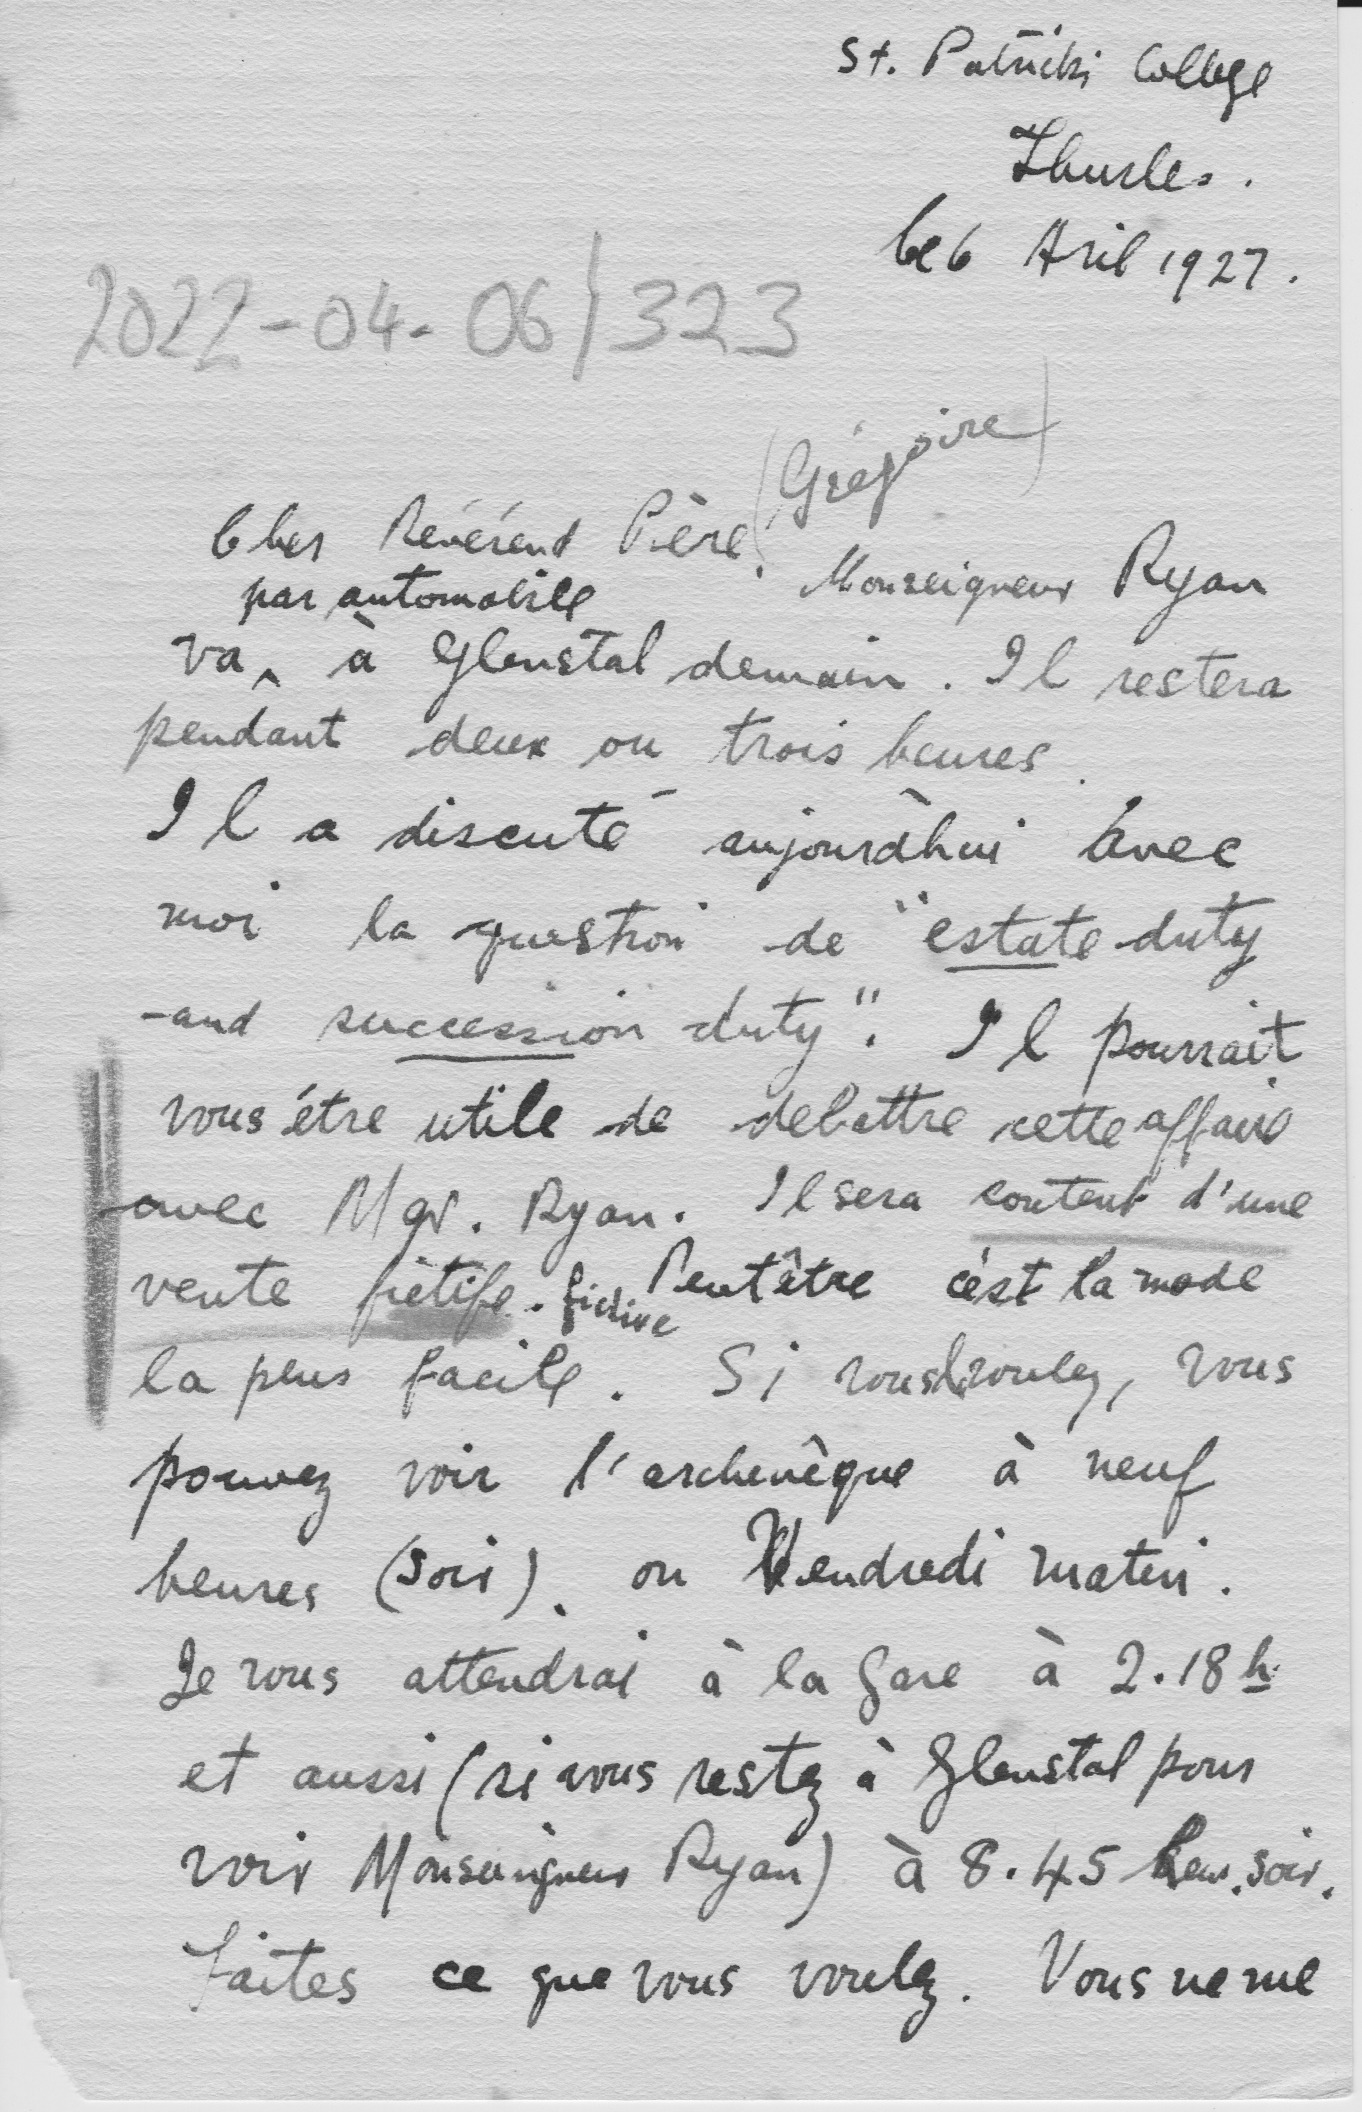 St. Patrick's College
Thurles.
Le 6 Avril 1927.
2022-04-06/323
(Grégoire)
Cher Révérend Père. Monseigneur Ryan
par automobile
va ^ à Glenstal demain. Il restera
pendant deux ou trois heures.
Il a discuté aujourd'hui avec
moi la question de "estate duty
and succession duty". Il pourrait
vous être utile de debattre cette affaire
avec Mgr. Ryan. Il sera content d'une
vente fictife. fictive Peutêtre c'est la mode
la plus facile. Si vous le voulez, vous
pouvez voir l'archevêque à neuf
heures (soir). ou Vendredi matin.
Je vous attendrai à la Gare à 2.18 h.
et aussi (si vous restez à Glenstal pour
voir Monseigneur Ryan) à 8.45 heur. soir.
Faites ce que vous voulez. Vous ne me